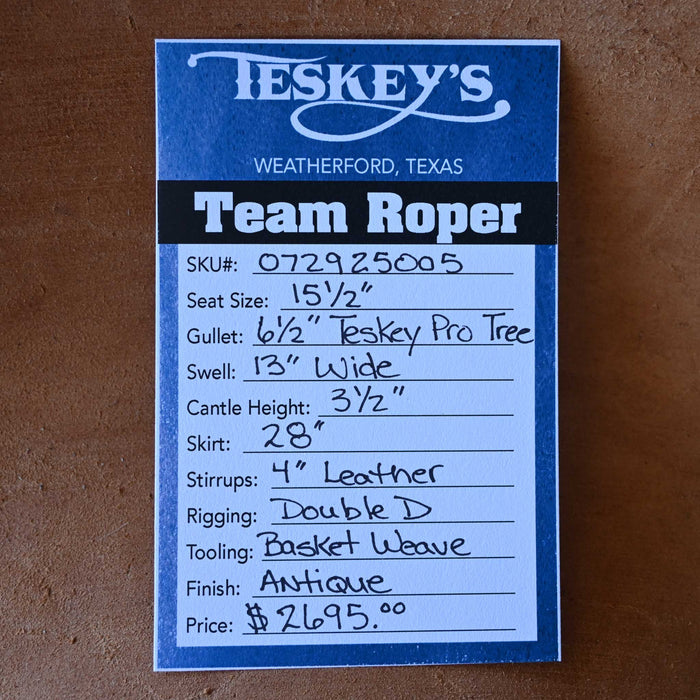 TESKEY'S
WEATHERFORD, TEXAS
Team Roper
SKU#: 072925005
Seat Size: 15 1/2"
Gullet: 6 1/2" Teskey Pro Tree
Swell: 13" Wide
Cantle Height: 3 1/2"
Skirt: 28"
Stirrups: 4" Leather
Rigging: Double D
Tooling: Basket Weave
Finish: Antique
Price: $2695.00